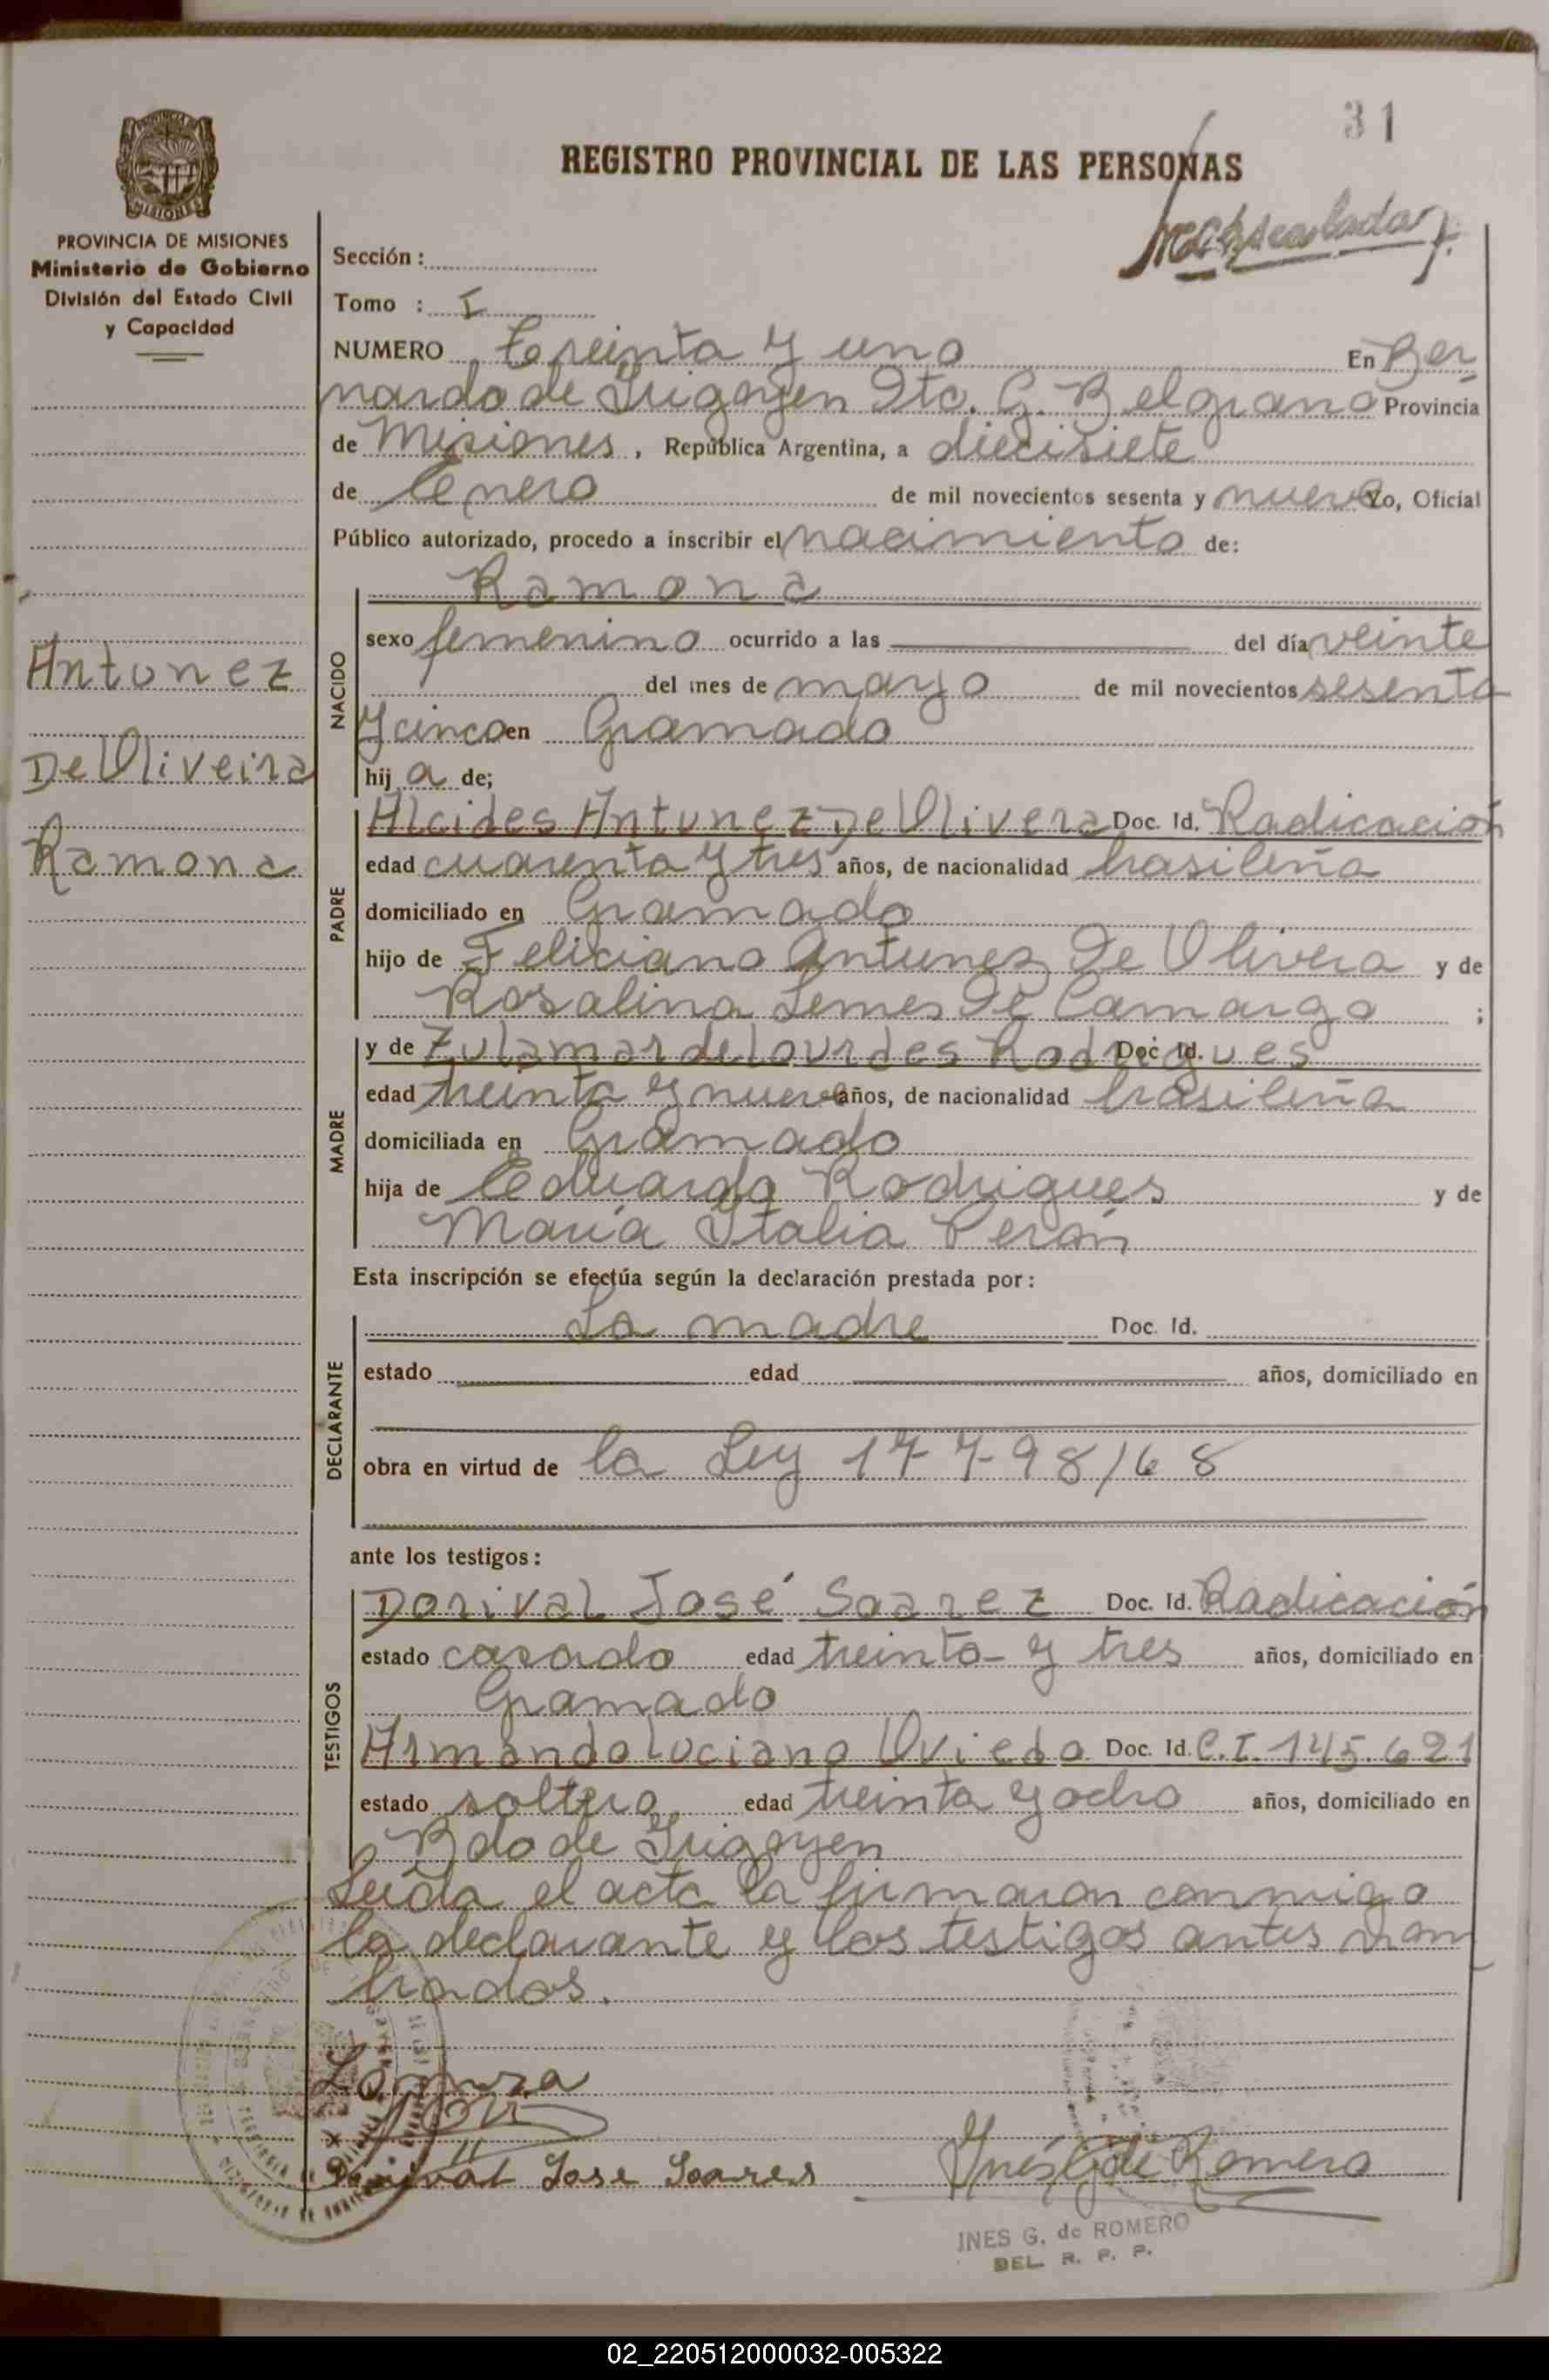 31
REGISTRO PROVINCIAL DE LAS PERSONAS
MISIONES
PROVINCIA DE MISIONES
Ministerio de Gobierno
División del Estado Civil
y Capacidad
Sección :
Tomo : I
NUMERO Treinta y uno En Ber
nardo de Irigoyen Dto. G. Belgrano Provincia
de Misiones, República Argentina, a diecisiete
de Enero de mil novecientos sesenta y nueve Yo, Oficial
Público autorizado, procedo a inscribir el nacimiento de:
Antunez
De Oliveira
Ramona
NACIDO
Ramona
sexo femenino ocurrido a las del día veinte
del mes de mayo de mil novecientos sesenta
y cinco en Gramado
hija de;
PADRE
Alcides Antunez De Olivera Doc. Id. Radicación
edad cuarenta y tres años, de nacionalidad brasileña
domiciliado en Gramado
hijo de Feliciano Antunez De Olivera y de
Rosalina Lemes De Camargo ;
MADRE
y de Zulamar de Lourdes Rodrigues Doc. Id.
edad treinta y nueve años, de nacionalidad brasileña
domiciliada en Gramado
hija de Eduardo Rodrigues y de
María Italia Perón
Esta inscripción se efectúa según la declaración prestada por:
DECLARANTE
La madre Doc. Id.
estado edad años, domiciliado en
obra en virtud de la Ley 17798/68
ante los testigos:
TESTIGOS
Dorival José Soarez Doc. Id. Radicación
estado casado edad treinta y tres años, domiciliado en
Gramado
Armando Luciano Oviedo Doc. Id. C.I. 145.621
estado soltero edad treinta y ocho años, domiciliado en
Bdo de Irigoyen
Leída el acta la firmaron conmigo
la declarante y los testigos antes nom
brados.
Dorival Jose Soares
Inés G. de Romero
INES G. de ROMERO
DEL. R. P. P.
02_220512000032-005322